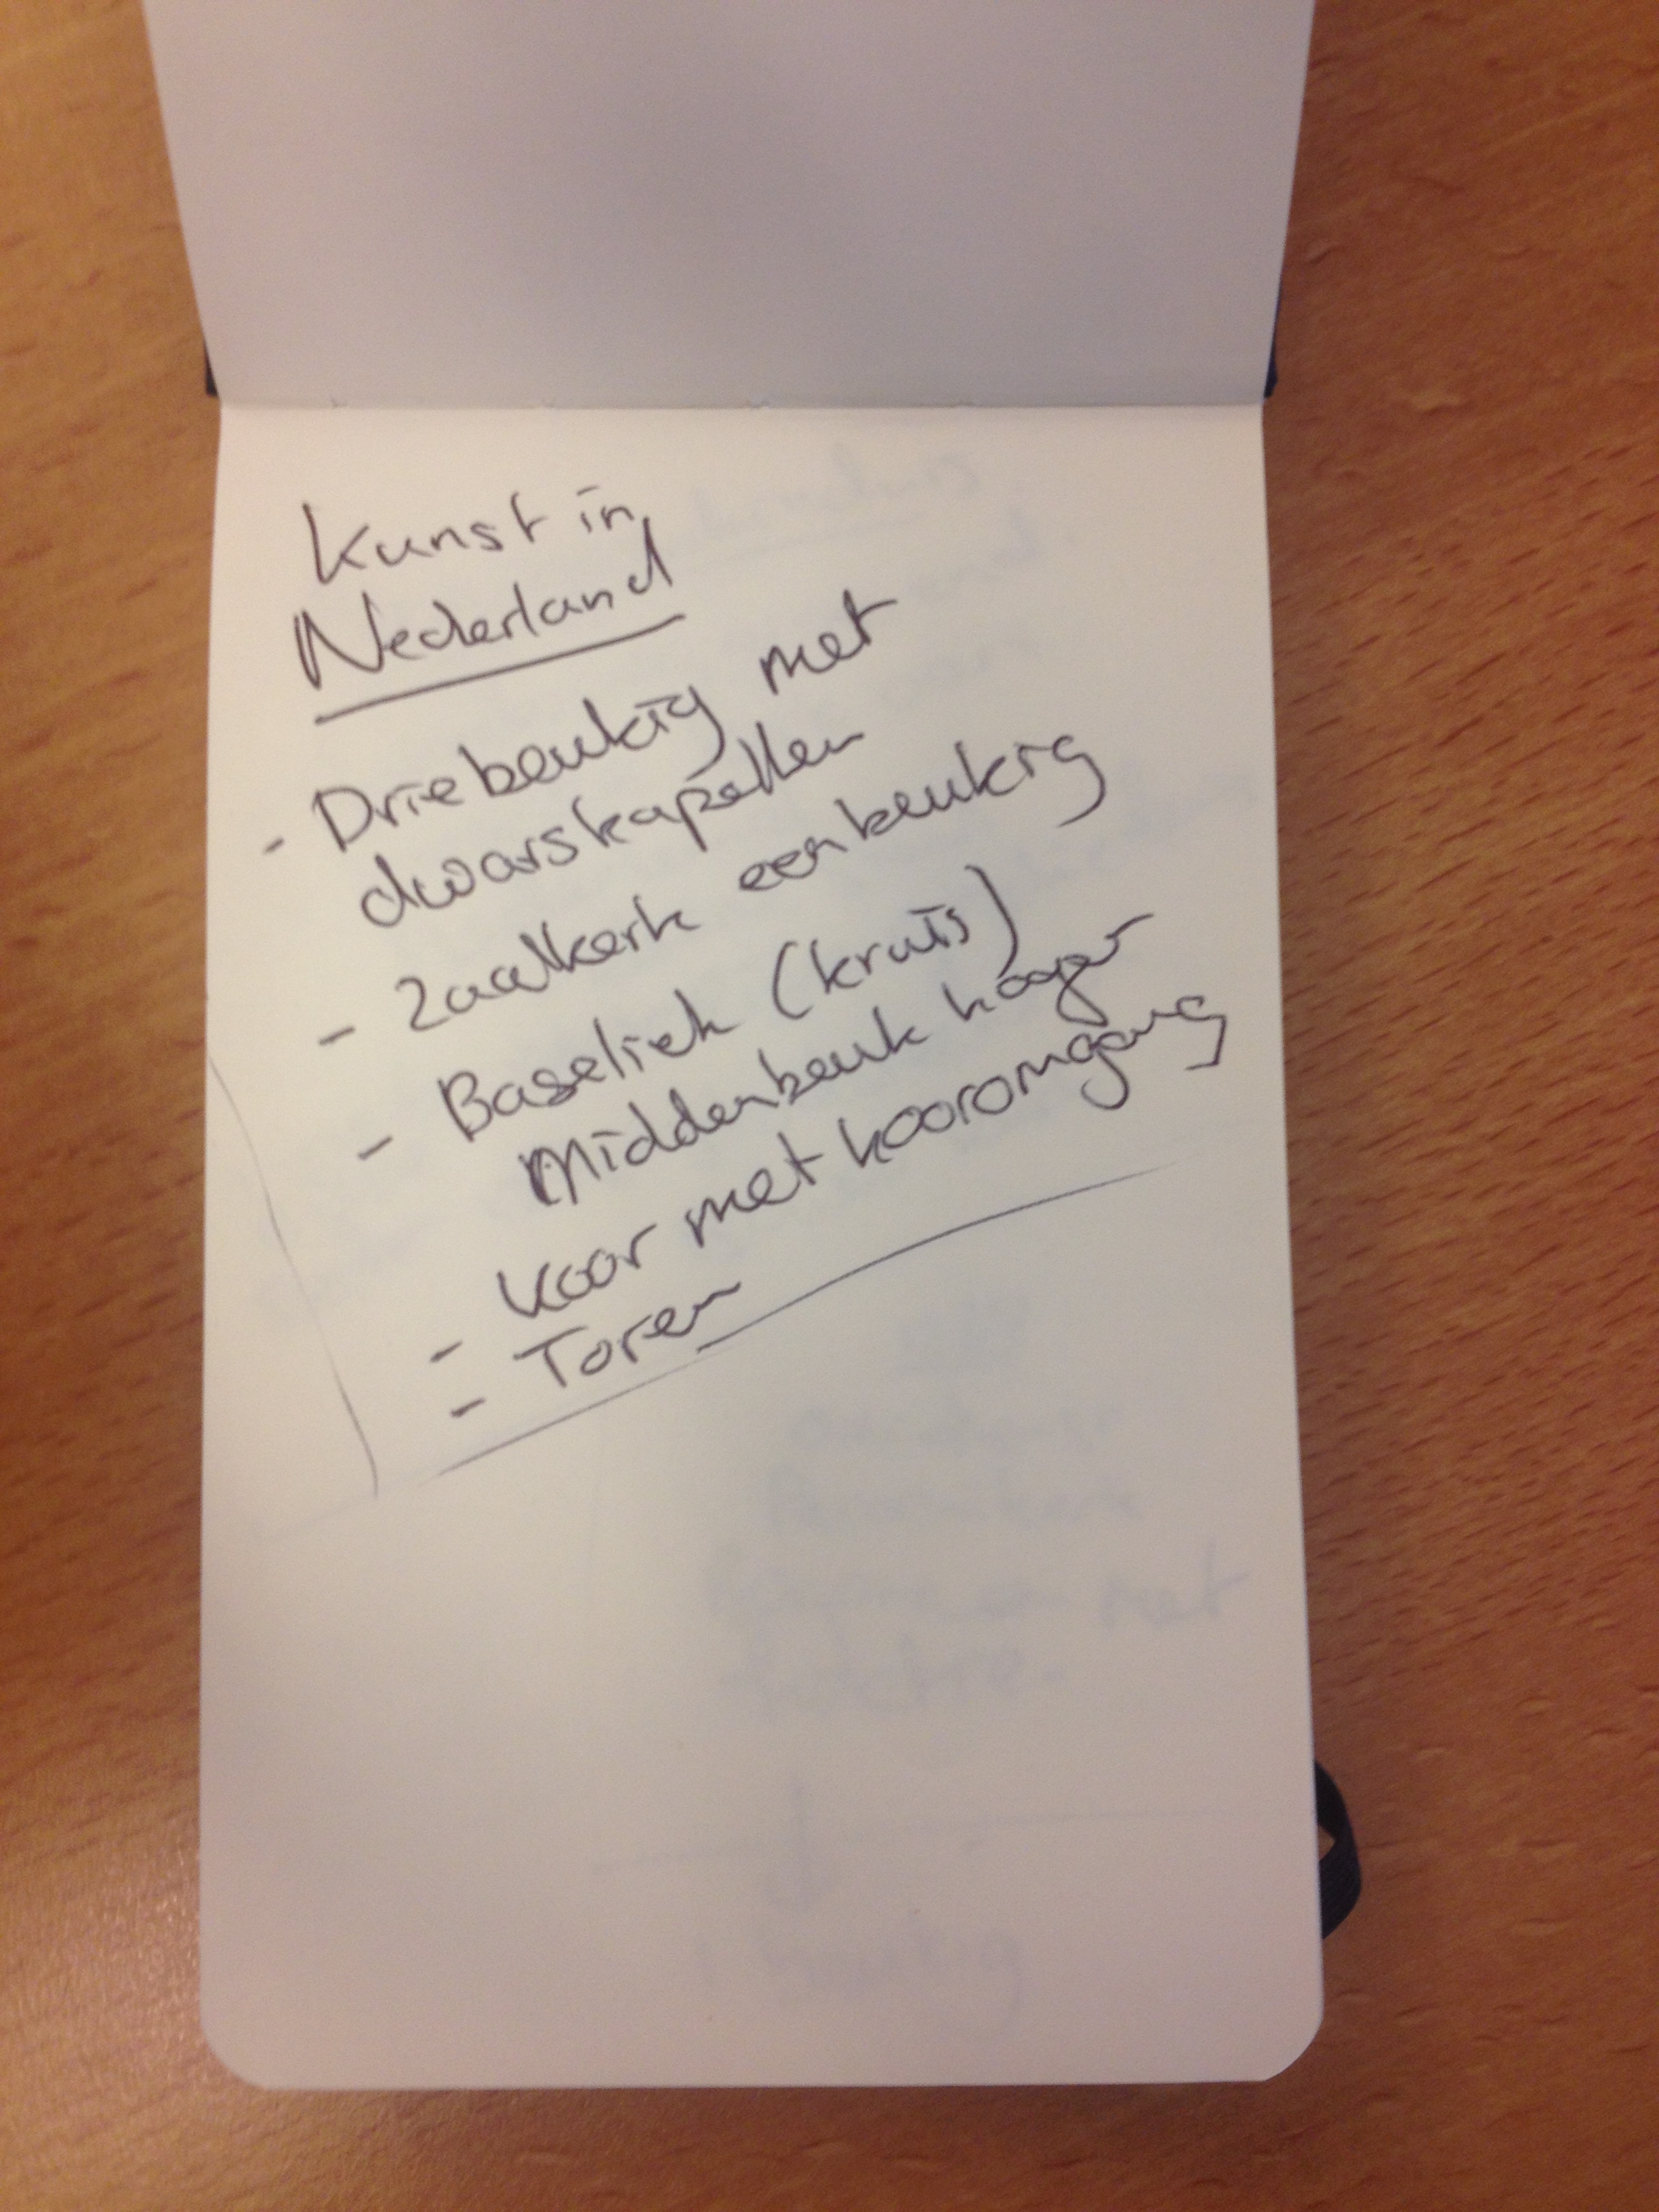 Kunst in
Nederland
- Driebeukig met
dwarskapellen
- Zaalkerk eenbeukig
- Baseliek (kruis)
Middenbeuk hoger
- Koor met kooromgang
- Toren